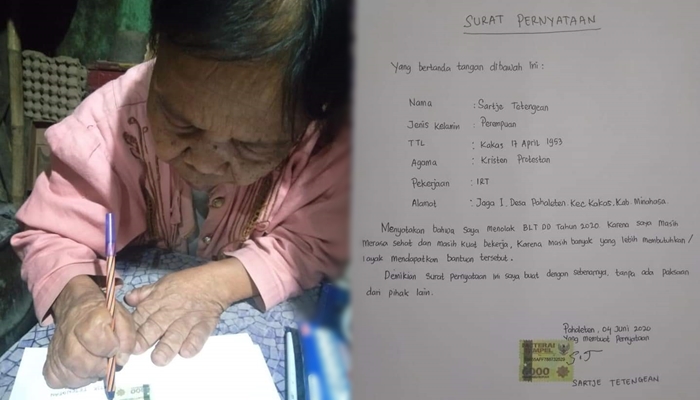 SURAT PERNYATAAN
Yang bertanda tangan dibawah ini :
Nama : Sartje Tetengean
Jenis Kelamin : Perempuan
TTL : Kakas 17 April 1953
Agama : Kristen Protestan
Pekerjaan : IRT
Alamat : Jaga I. Desa Pahaleten. Kec Kakas. Kab. Minahasa.
Menyatakan bahwa saya menolak BLT DD Tahun 2020 Karena saya masih
merasa sehat dan masih kuat bekerja, Karena masih banyak yang lebih membutuhkan /
layak mendapatkan bantuan tersebut.
Demikian Surat pernyataan ini saya buat dengan sebenarnya, tanpa ada paksaan
dari pihak lain.
Pahaleten, 04 Juni 2020
Yang membuat Pernyataan
METERAI
TEMPEL
6000
S.T
SARTJE TETENGEAN
6000